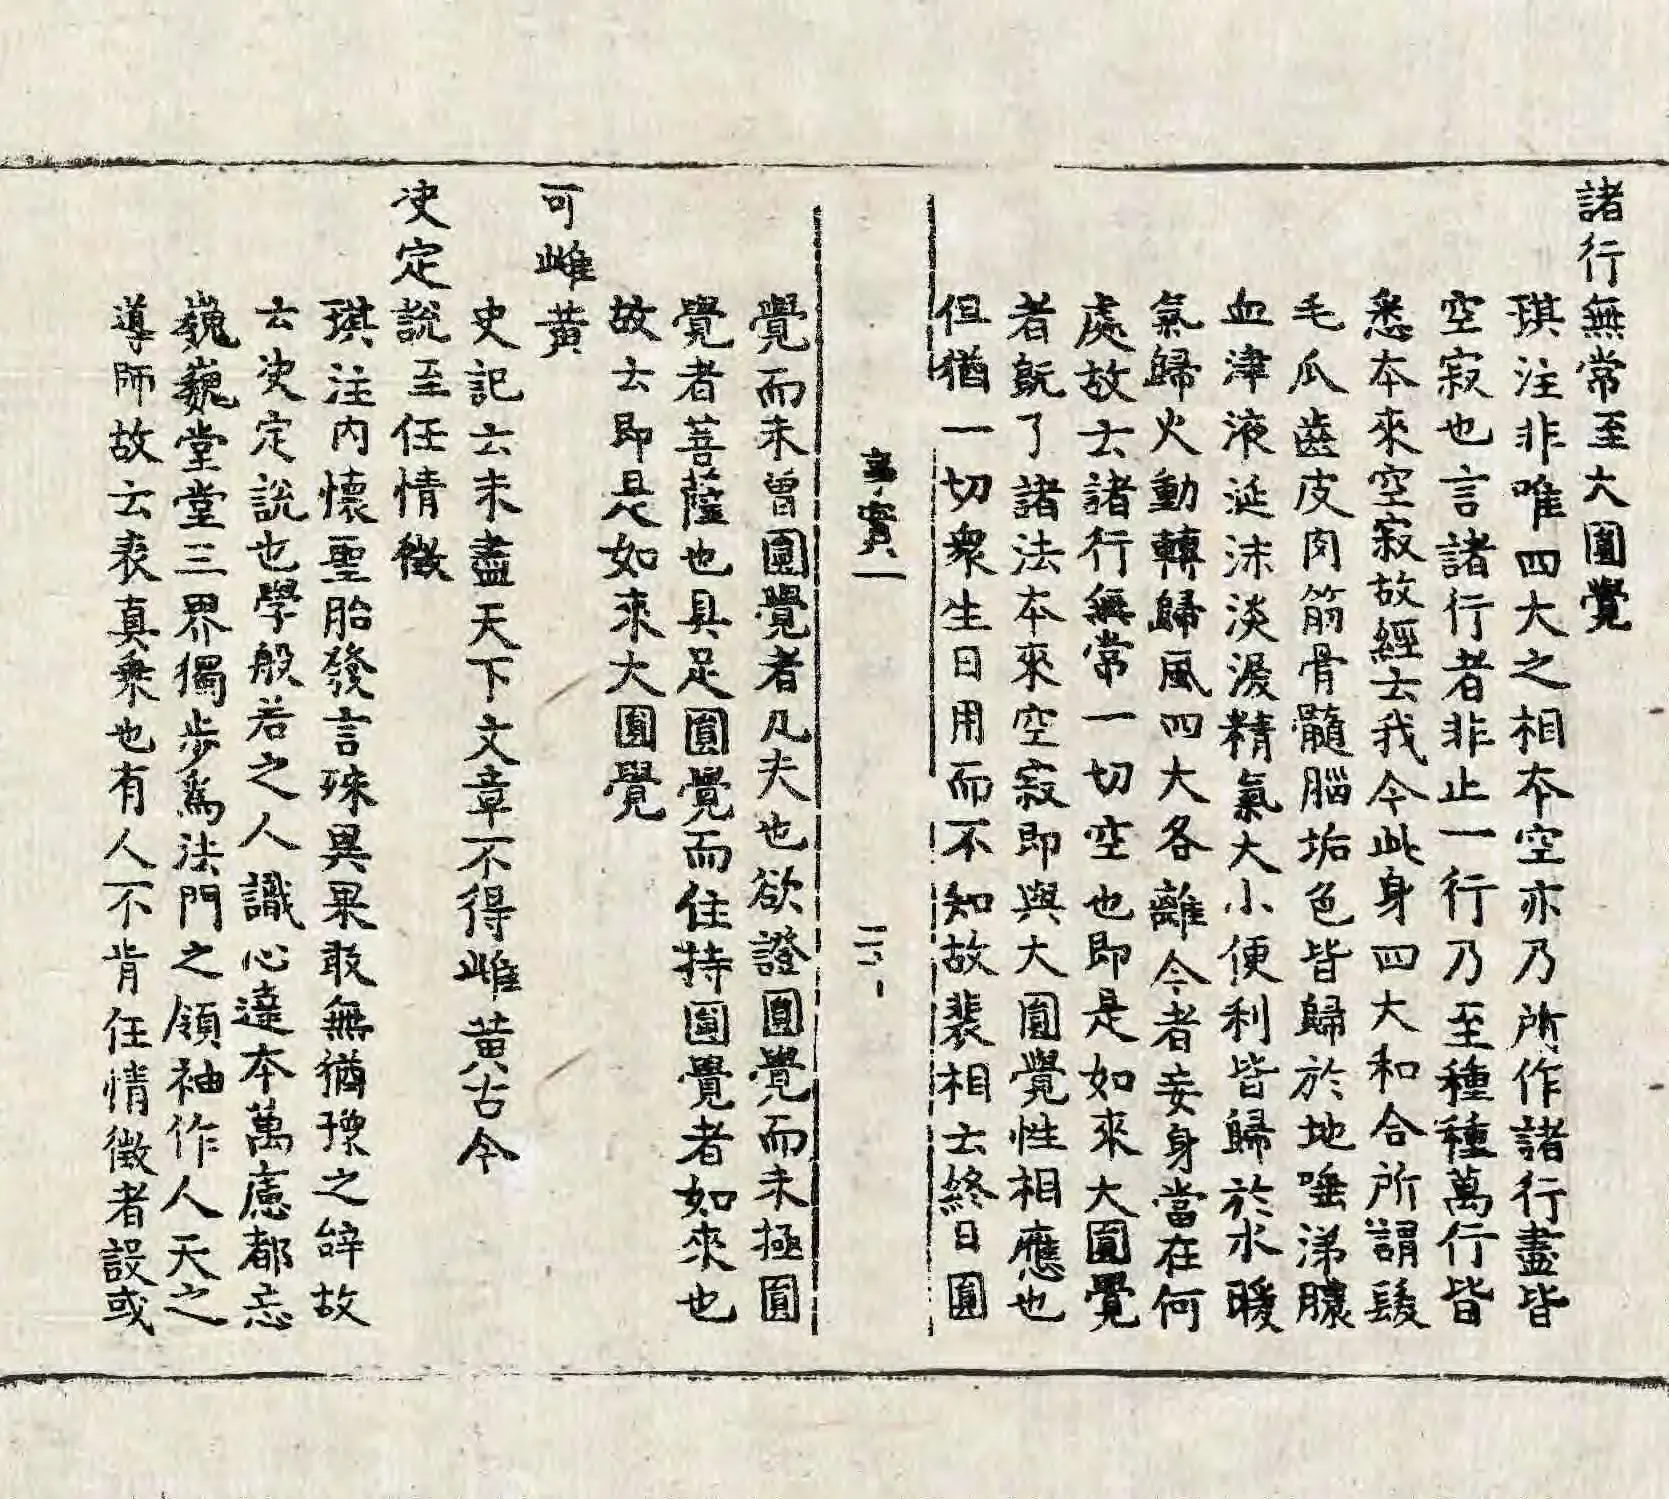 諸行無常至大圓覺
琪注非唯四大之相本空亦乃所作諸行盡皆
空寂也言諸行者非止一行乃至種種萬行皆
悉本來空寂故經云我今此身四大和合所謂髮
毛爪齒皮肉筋骨髓腦垢色皆歸於地唾涕膿
血津液涎沫淡淚精氣大小便利皆歸於水暖
氣歸火動轉歸風四大各離今者妄身當在何
處故云諸行無常一切空也即是如來大圓覺
者旣了諸法本來空寂即與大圓覺性相應也
但猶一切衆生日用而不知故裴相云終日圓
事實一
覺而未曾圓覺者凡夫也欲證圓覺而未極圓
覺者菩薩也具足圓覺而住持圓覺者如來也
故云即是如來大圓覺
可雌黃
史記云未盡天下文章不得雌黃古今
决定說至任情徵
琪注內懷聖胎發言殊異果敢無猶豫之辝故
云决定說也學般若之人識心達本萬慮都忘
巍巍堂堂三界獨步爲法門之領袖作人天之
導師故云表真乗也有人不肯任情徵者設或